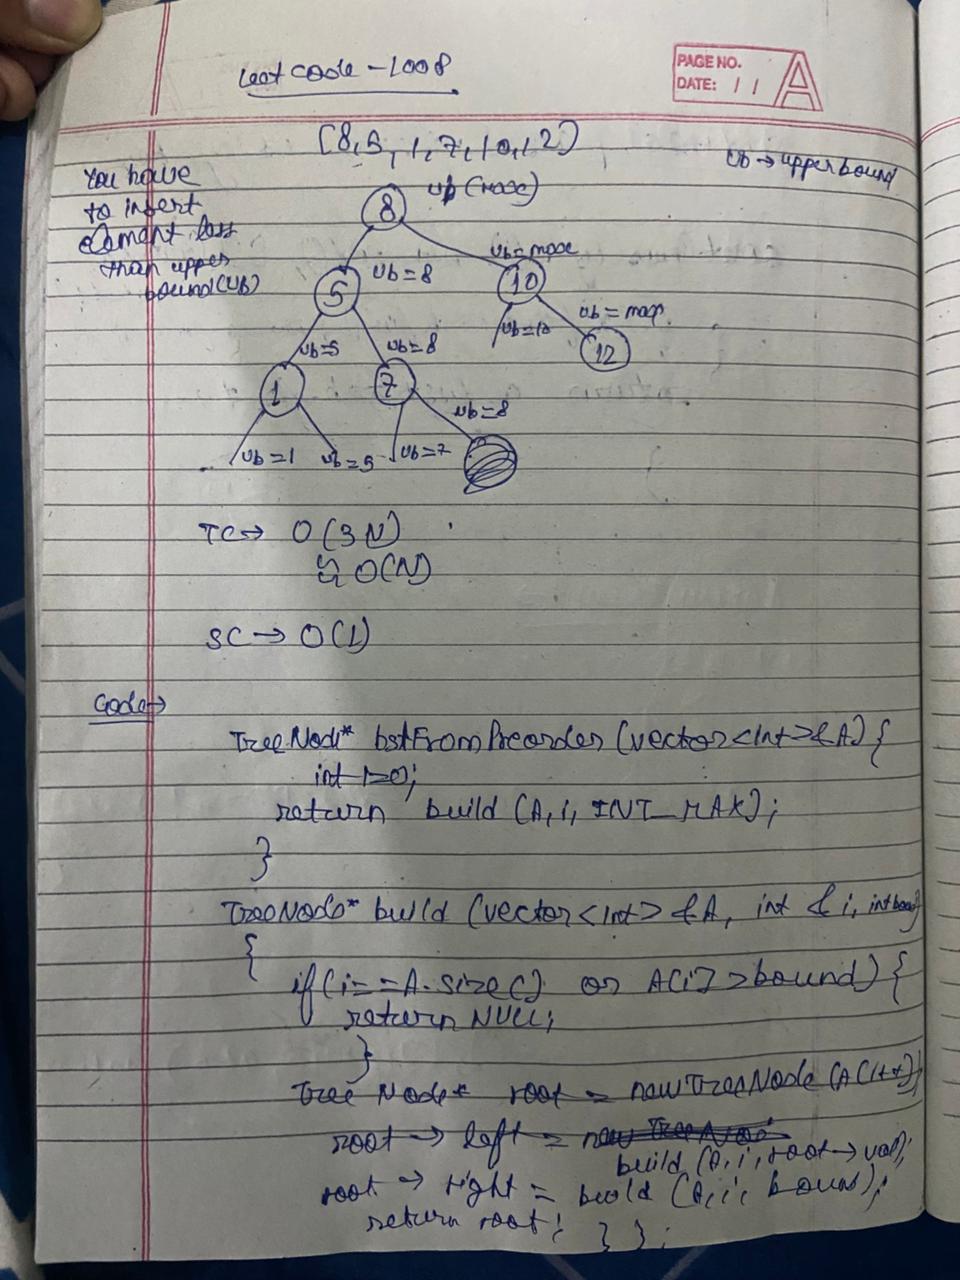 Leetcode - 1008
PAGE NO.
DATE: / /
A
[8,5,1,7,10,12]
ub → upper bound
You have
to insert
element less
than upper
bound(ub)
ub (max)
8
ub = max
ub = 8
5
10
ub = max
ub = 10
ub=5
ub=8
12
1
7
ub=8
ub=1
ub=5
ub=7
TC → O(3N)
≈ O(N)
SC → O(1)
Code→
TreeNode* bstFromPreorder (vector<int>&A) {
int i=0;
return build (A, i, INT_MAX);
}
TreeNode* build (vector<int> &A, int &i, int bound)
{
if(i==A.size() or A[i] > bound) {
return NULL;
}
Tree Node* root = new TreeNode (A[i++]);
root → left = new TreeNo
build (A, i, root → val);
root → right = build (A, i, bound);
return root; } };